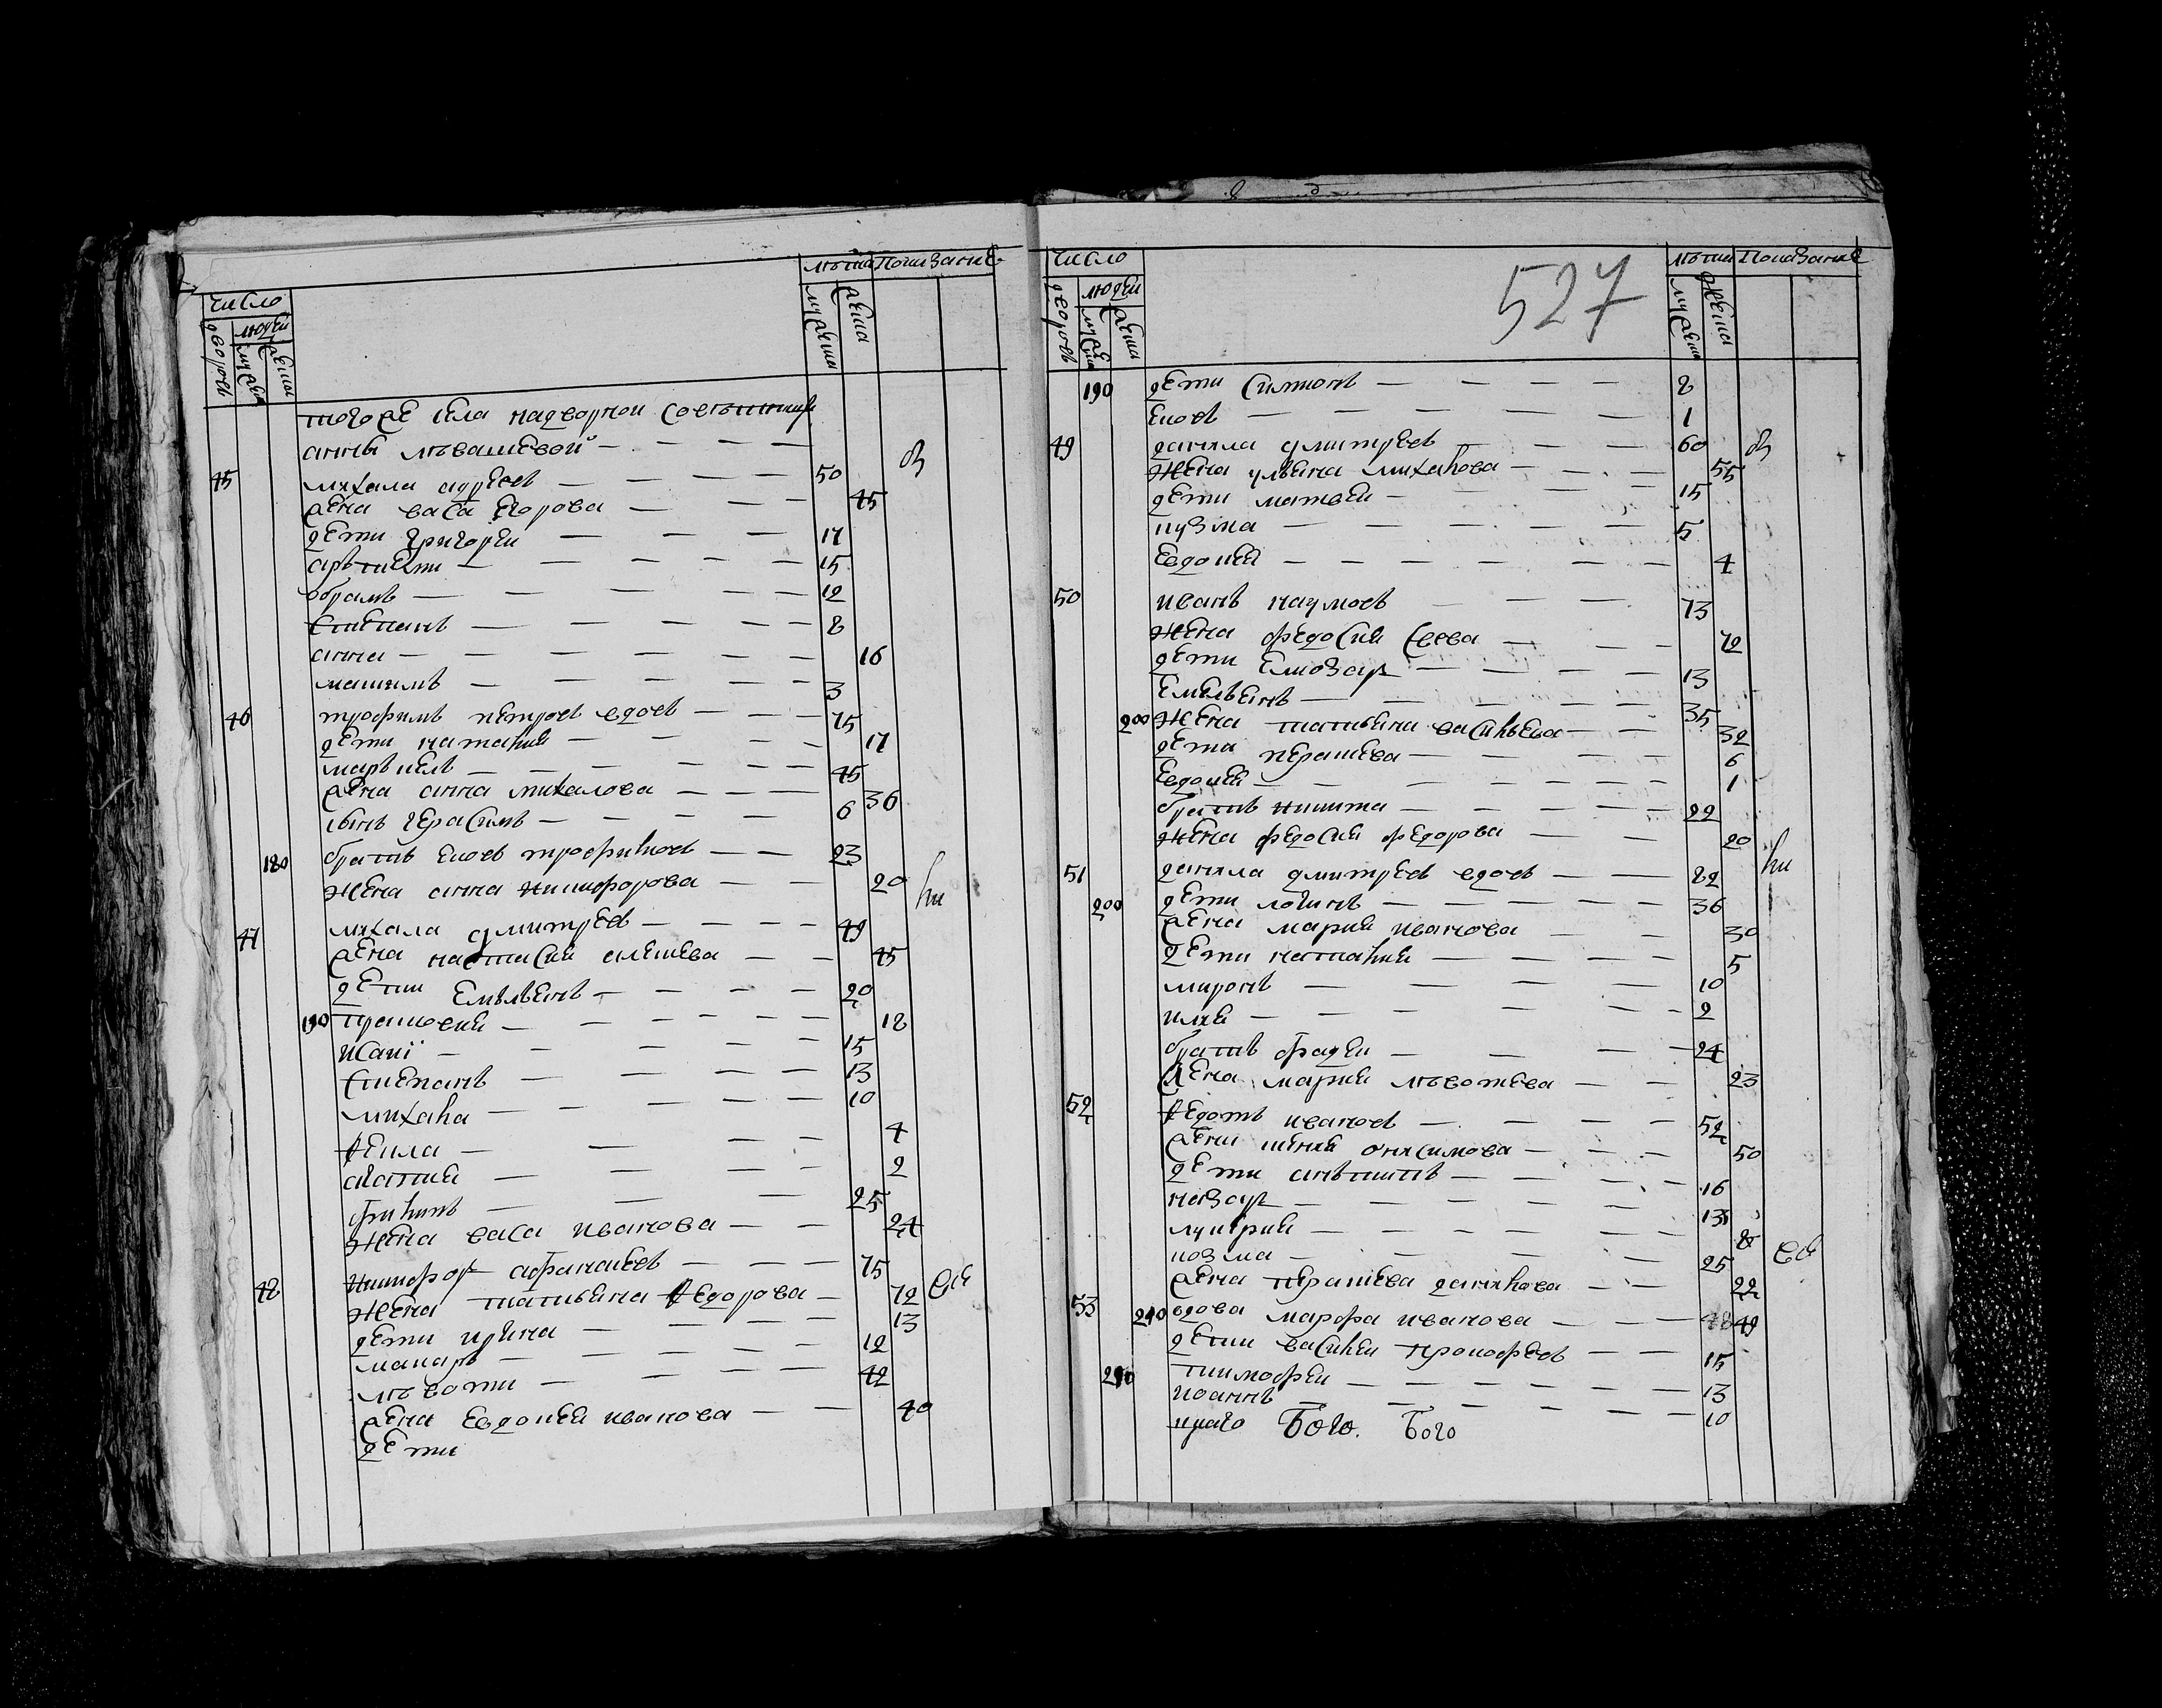 число
дворовъ
людей
мужеска
женска
лѣта
мужеска
женска
показание
тогоже села надворнои советници
анны левашевой
45 михаила андреевъ 50
жена васа егорова 45
дети григореи 17
артиеми 15
обрамъ 12
степанъ 8
анна 16
максимъ 3
46 трофимъ петровъ вдовъ 75
дети наталия 17
маркелъ 45
жена анна михаилова 36
сынъ герасимъ 6
180 братъ яковъ трофимовъ 23
жена анна никифорова 20
47 михаила дмитревъ 49
жена настасия алексеева 45
дети емельянъ 20
190 прасковия 18
исаиі 15
степанъ 13
михаила 10
фекла 4
агапия 2
филипъ 25
жена васа иванова 24
48 никифоръ афанасьевъ 75
жена татьяна федорова 72
дети ирина 13
макаръ 12
леонти 42
жена евдокия иванова 40
дети
число
дворовъ
людеи
мужеска
женска
527
лѣта
мужеска
женска
показание
190 дети симионъ 8
яковъ 1
49 данила дмитревъ 60
жена ульяна михаилова 55
дети матвеи 15
кузма 5
евдокия 4
50 иванъ наумовъ 73
жена федосия 72
дети елиозаръ 13
емельянъ 35
200 жена татьяна васильева 32
дети 6
евдокия 1
братъ никита 22
жена федосия федорова 20
51 данила дмитревъ вдовъ 82
200 дети логинъ 36
жена мария иванова 30
дети наталия 5
миронъ 10
илия 2
братъ фадеи 24
жена мария 23
52 федотъ ивановъ 52
жена онисимова 50
дети антипъ 16
назаръ 13
лукерия 8
козма 25
жена данилова 22
53 210 вдова марфа иванова 49
дети василеи прокофьевъ 15
210 тимофеи 13
иоаннъ 10
Бого. Бого